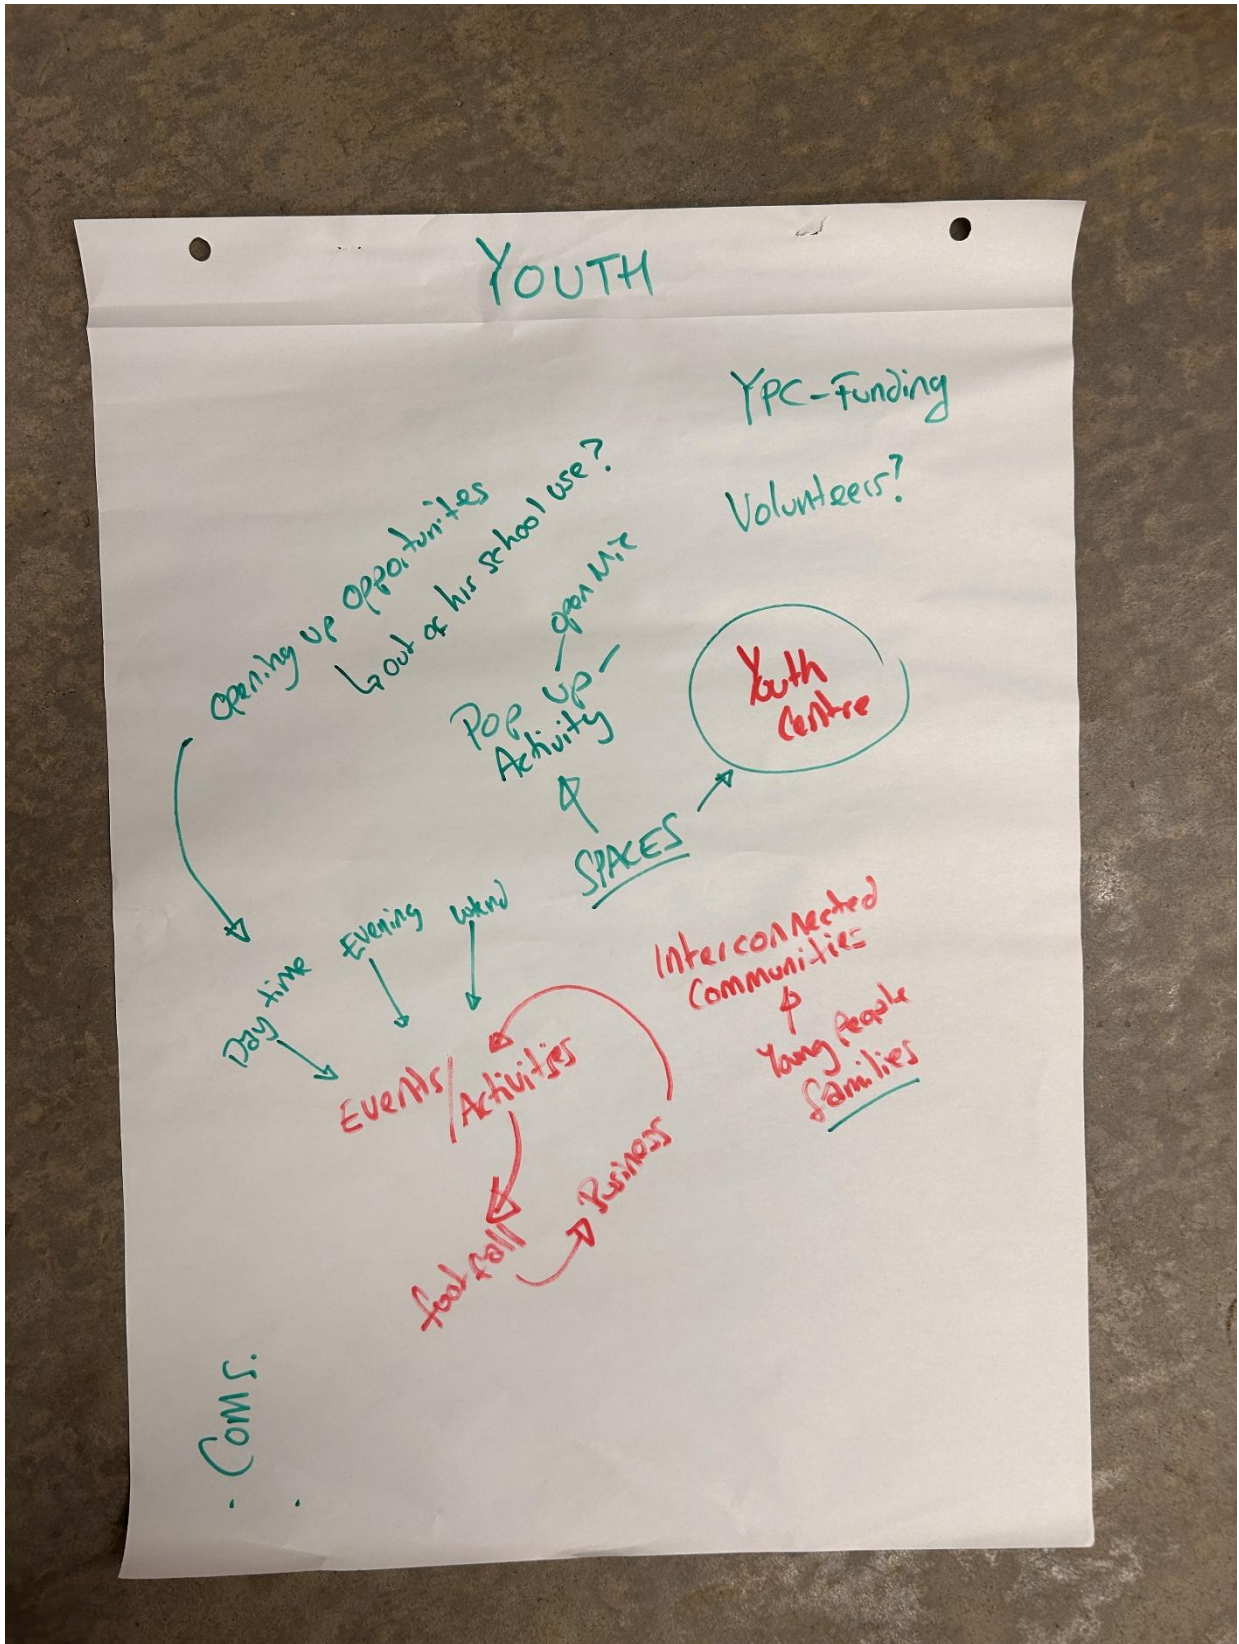 YOUTH
YPC-Funding
Volunteers?
opening up opportunities
out of hrs school use?
open Mic
Pop up
Activity
Youth
Centre
SPACES
Day time
Evening
wkend
Interconnected
Communities
Young People
families
Events/Activities
Business
footfall
Coms.